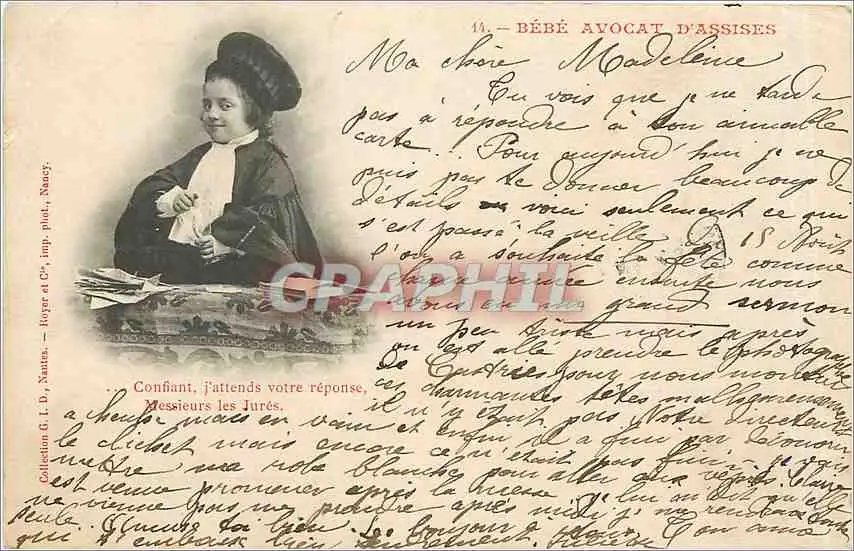 14. — BÉBÉ AVOCAT D'ASSISES
Ma chère Madeleine
Tu vois que je ne tarde
pas à répondre à ton aimable
carte... Pour aujourd'hui je ne
puis pas te donner beaucoup de
détails voici seulement ce qui
s'est passé la veille du 15 Août
l'on a souhaité la fête comme
chaque année ensuite nous
avons eu un grand sermon
un peu triste mais après
on est allé prendre le photographe
de Castres pour nous montrer
ces charmantes têtes malheureusement
il n'y était pas. Notre directeur
a cherché mais en vain et enfin il a fini par découvrir
le clichet mais encore ce n'était pas fini. je vais
mettre ma robe blanche pour aller aux vêpres. Claire
est venue promener après la messe. je lui ai dit qu'elle
ne vienne pas me prendre après midi je me rendrais
seule... Amuse toi bien. Le bonjour à
qui s'embrasse bien Ton amie
... Confiant, j'attends votre réponse,
Messieurs les Jurés.
Collection G. I. D., Nantes. — Royer et Cie, imp. phot., Nancy.
CPARAMA